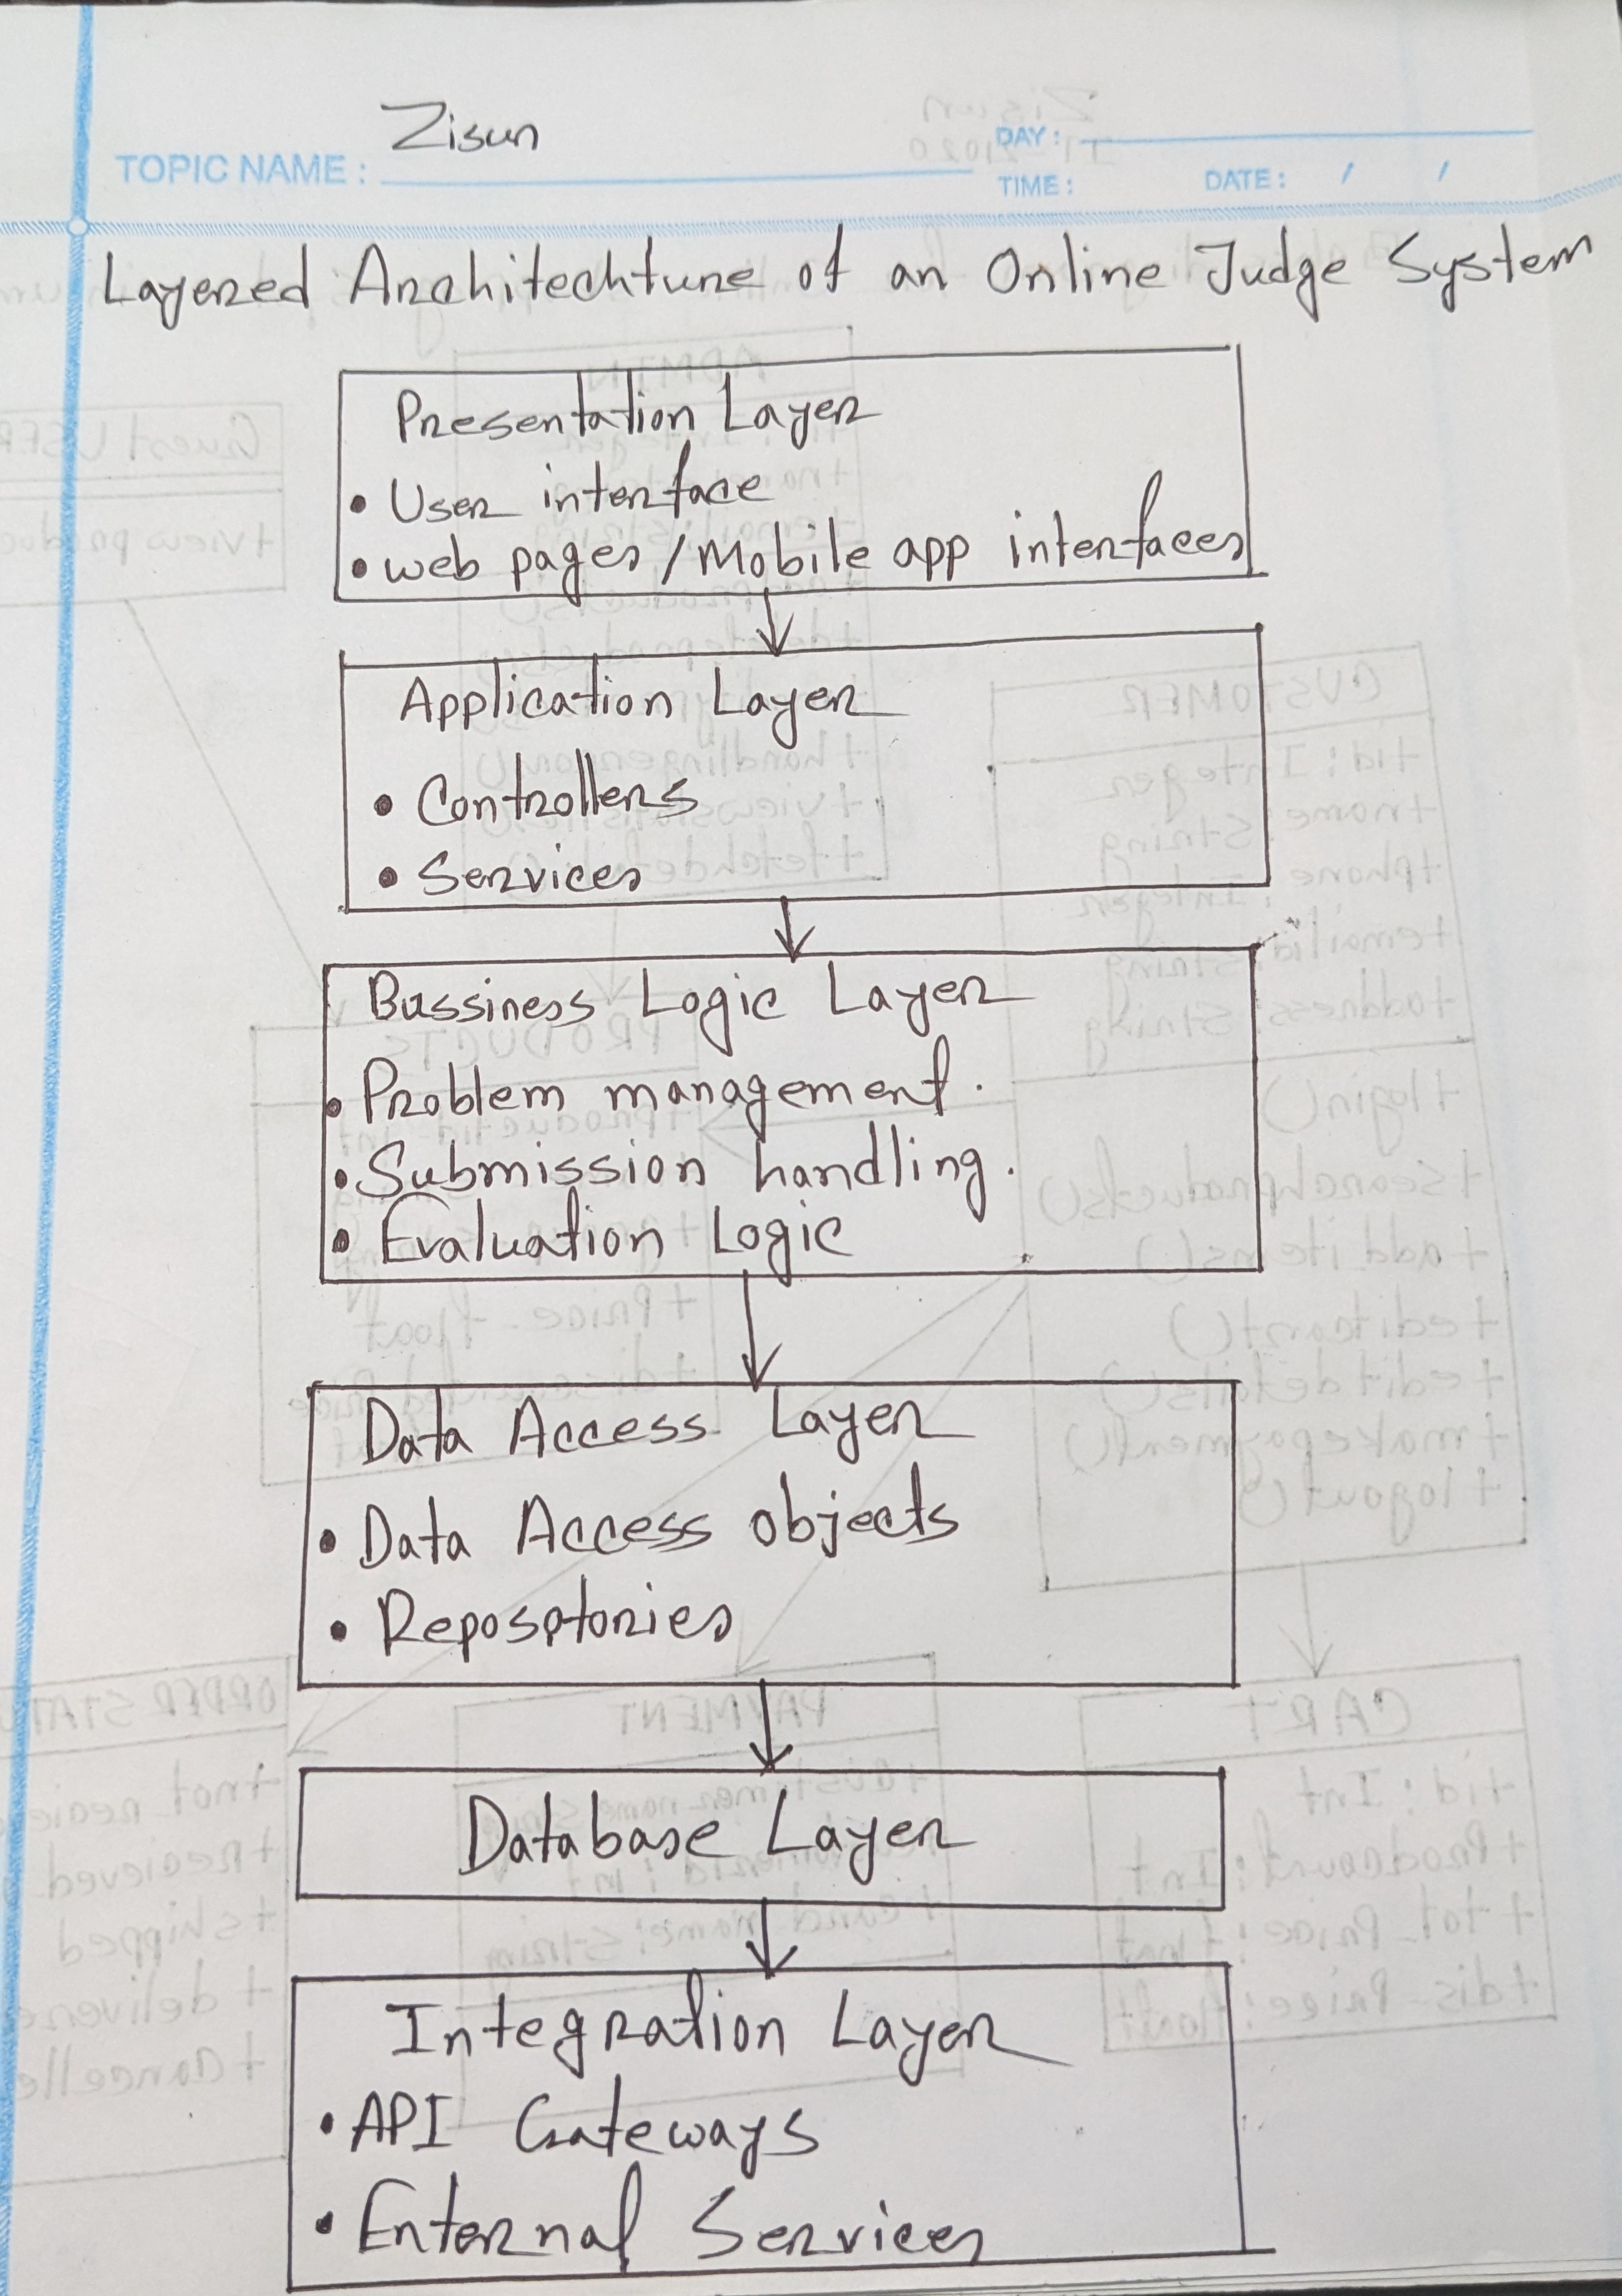 Zisun
TOPIC NAME :
DAY :
TIME :
DATE : / /
Layered Architechture of an Online Judge System
Presentation Layer
• User interface
• web pages / Mobile app interfaces
Application Layer
• Controllers
• Services
Bussiness Logic Layer
• Problem management.
• Submission handling.
• Evaluation Logic
Data Access Layer
• Data Access objects
• Repositories
Database Layer
Integration Layer
• API Gateways
• External Services